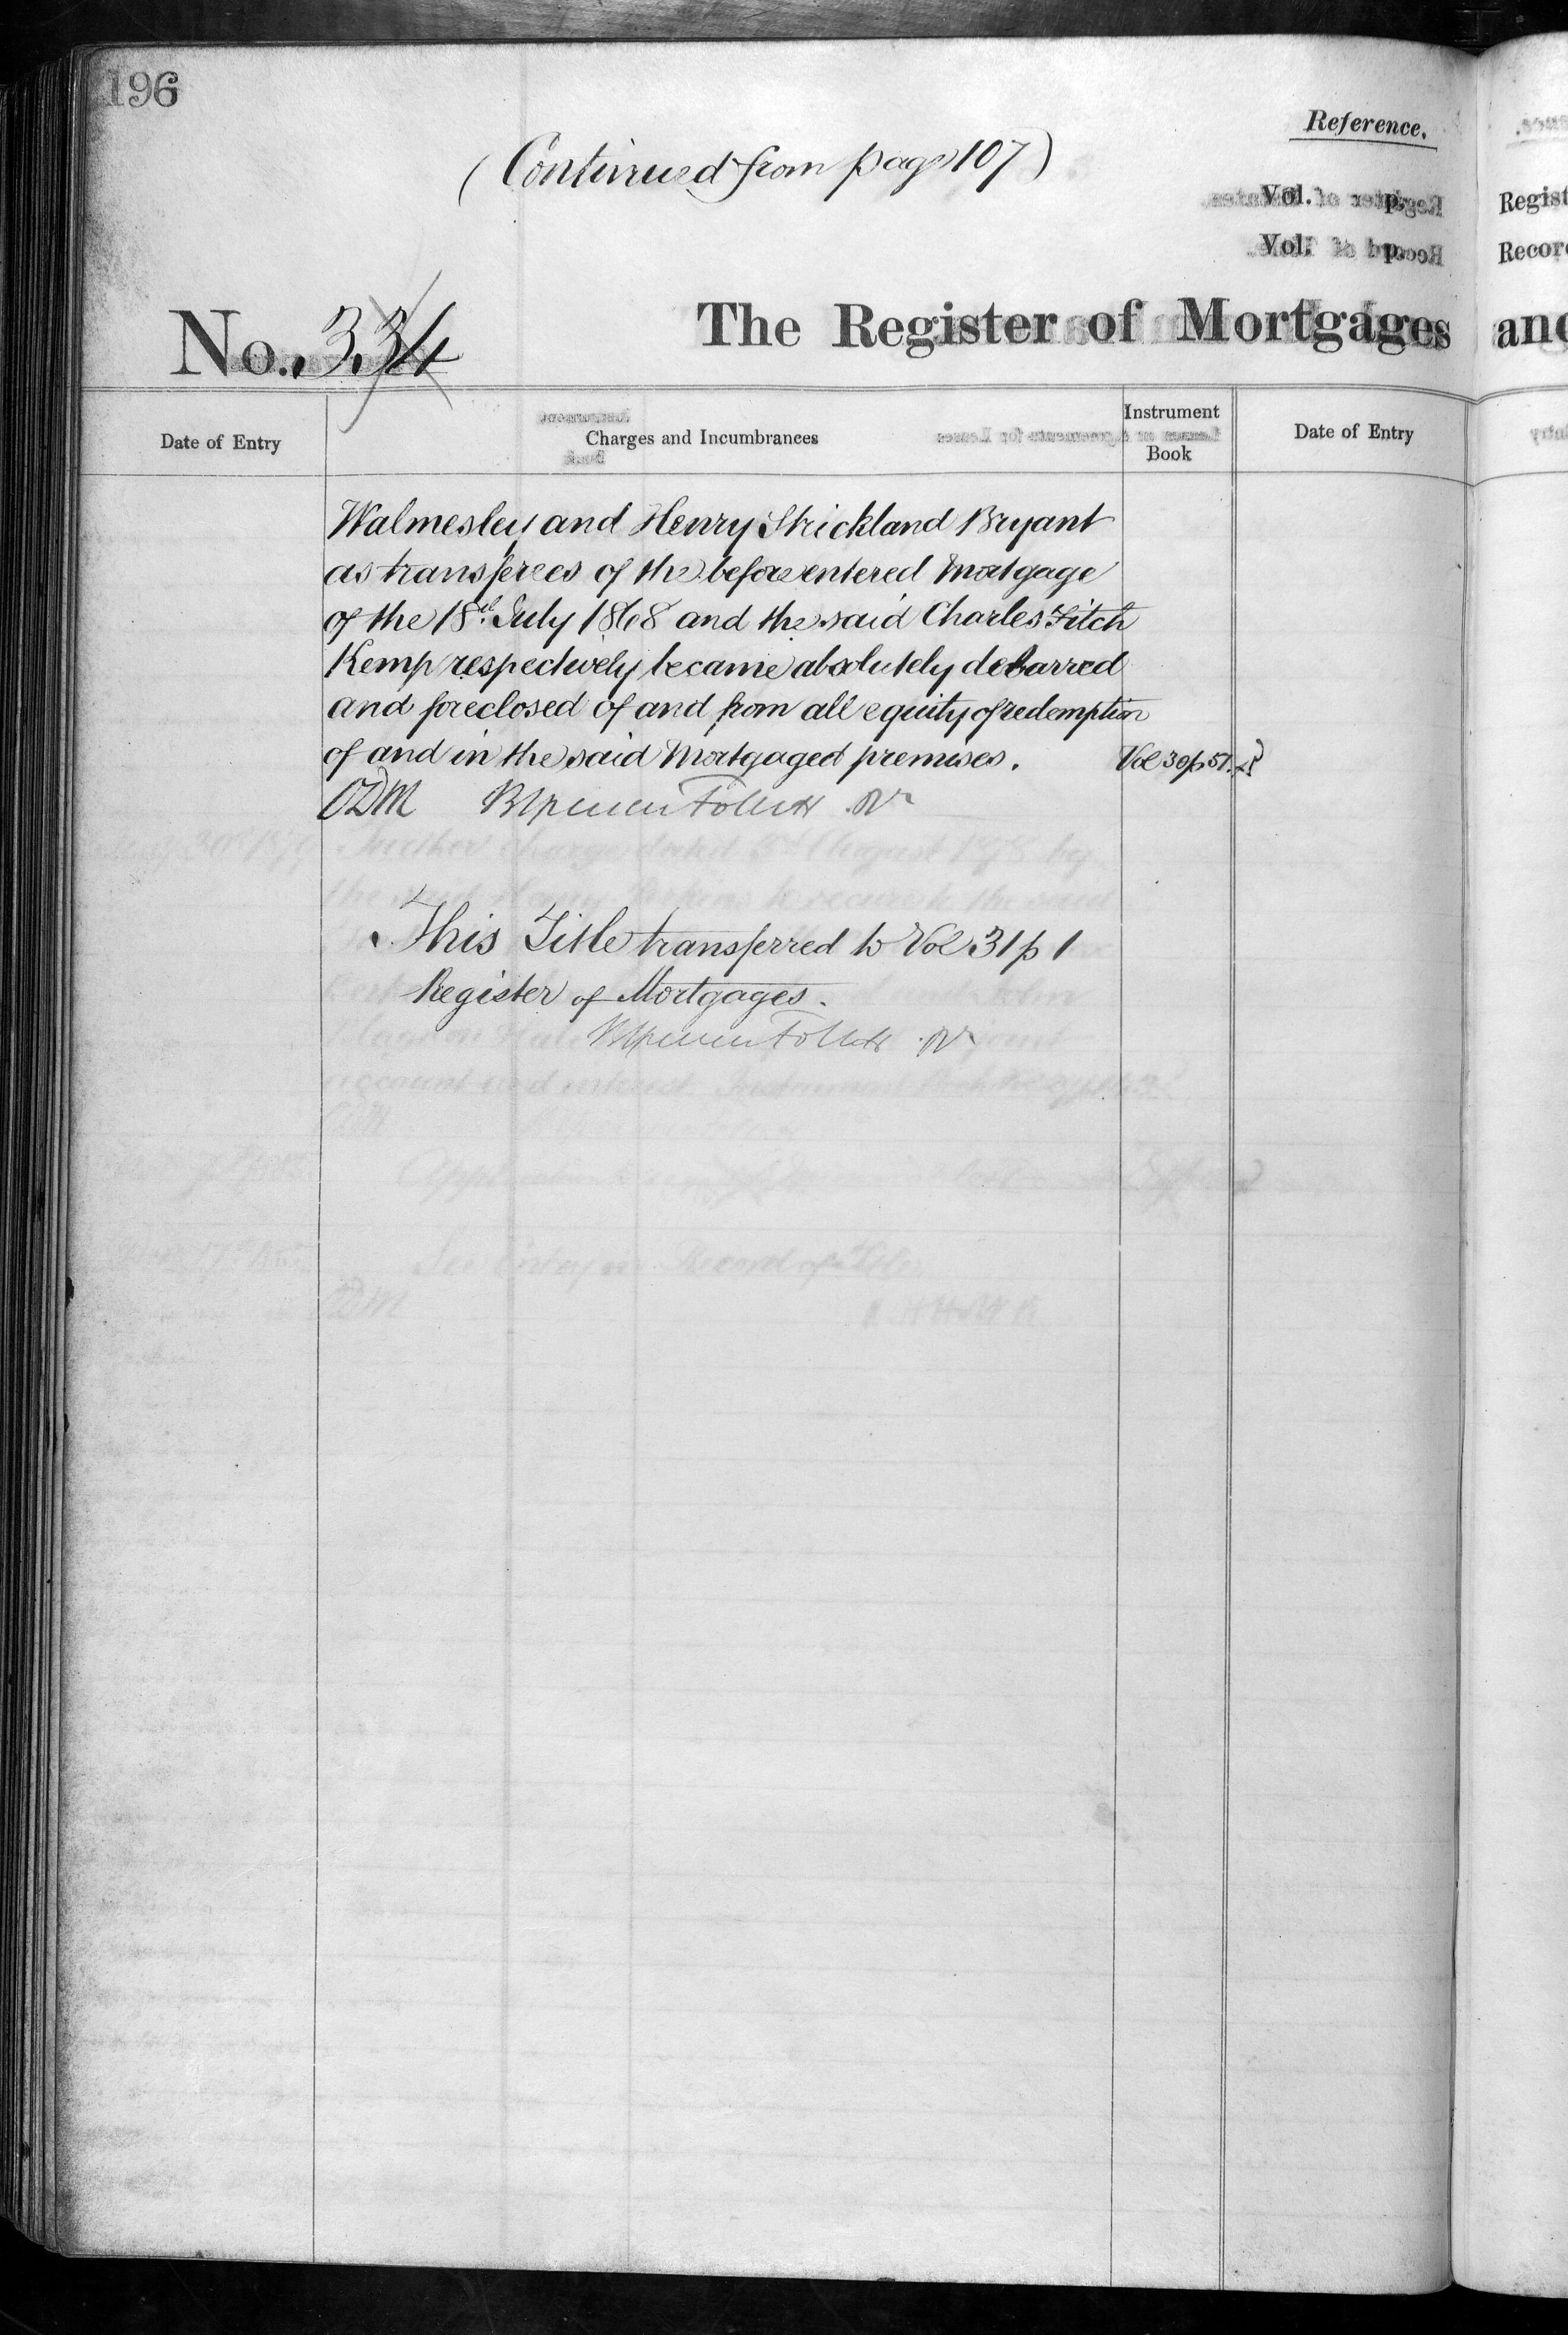 196
(Continued from page 107)
Reference.
Vol. p.
Vol. p.
Regist
Record
No. 334
The Register of Mortgages and
Date of Entry
Charges and Incumbrances
Instrument
Book
Date of Entry
Walmesley and Henry Strickland Bryant
as transferees of the before entered Mortgage
of the 18th July 1868 and the said Charles Fitch
Kemp respectively became absolutely debarred
and foreclosed of and from all equity of redemption
of and in the said Mortgaged premises.
Vol 30 p 57.
This Title transferred to Vol 31 p 1
Register of Mortgages.